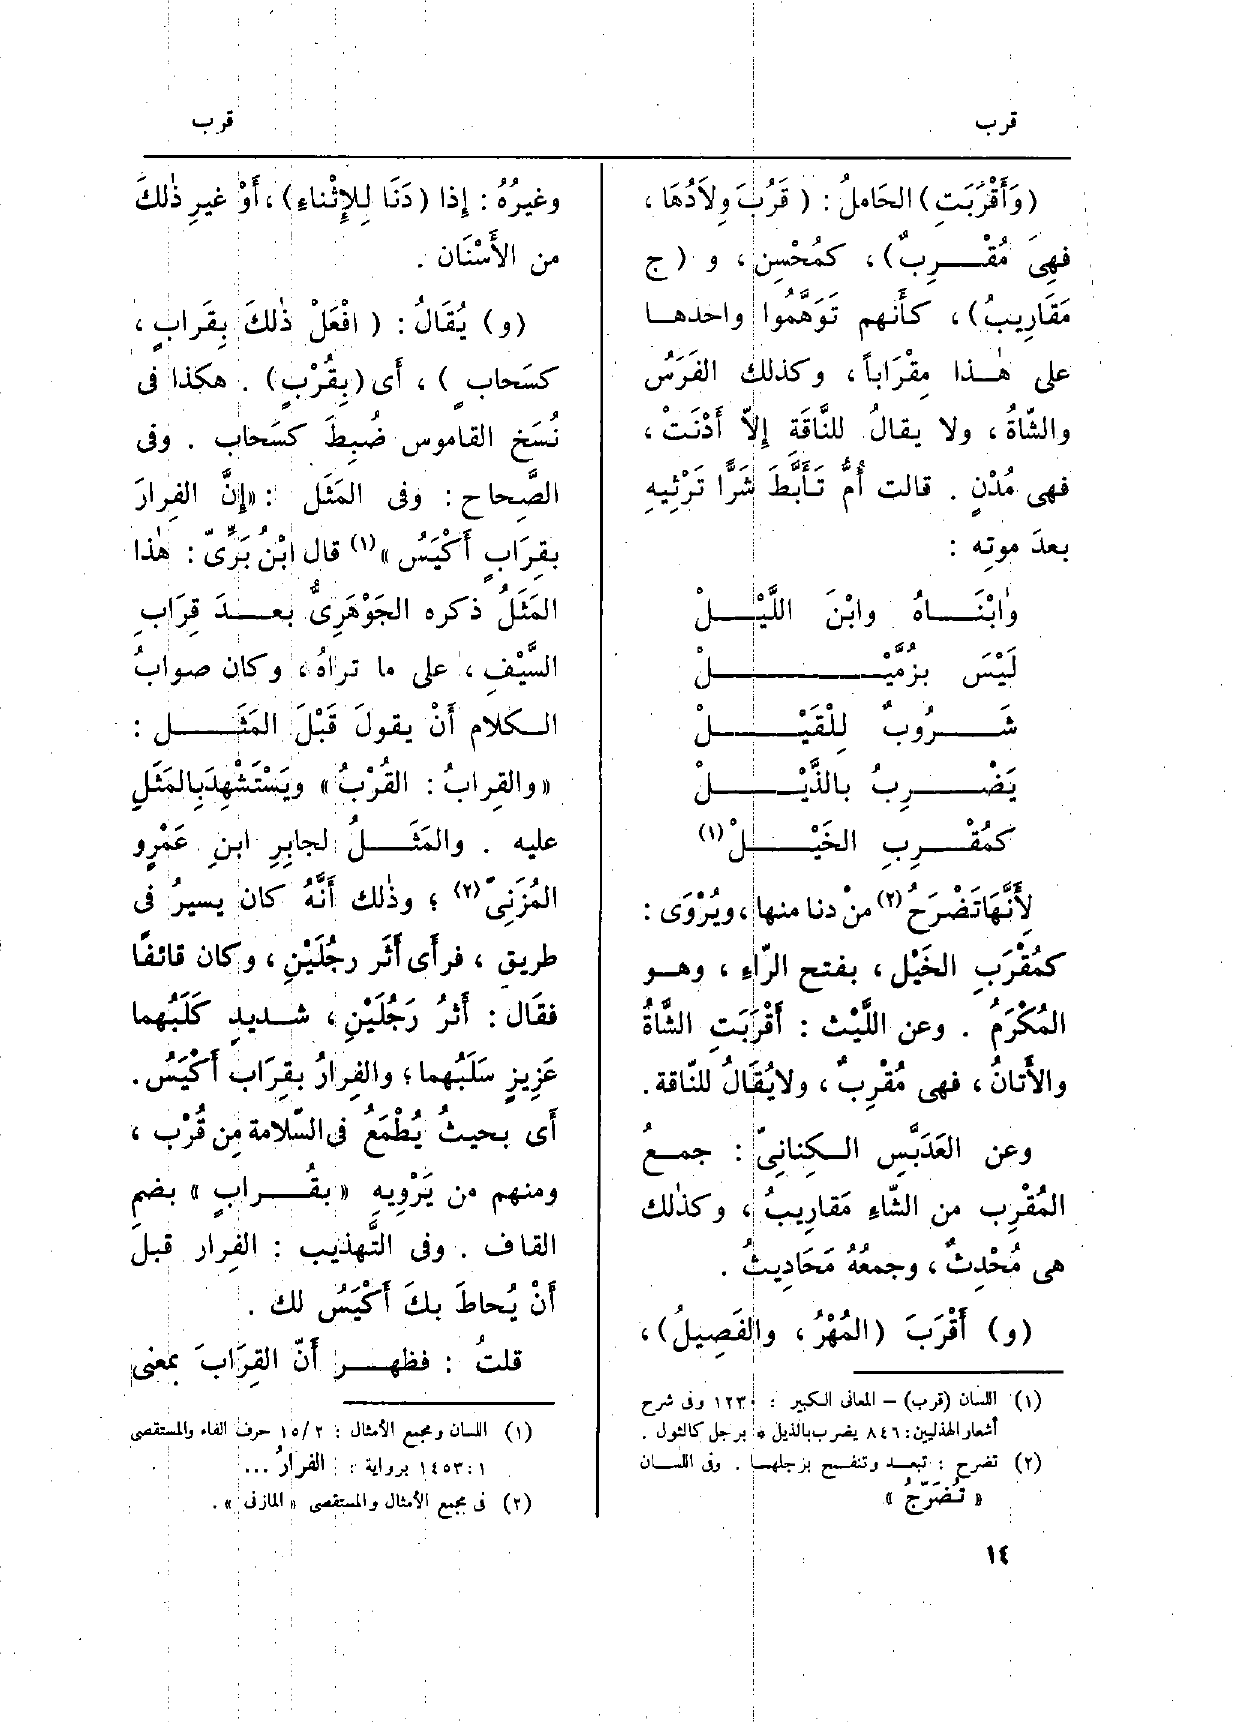 قرب
قرب
(وَأَقْرَبَتِ) الحَاملُ : ( قَرُبَ وِلاَدُهَا ،
فهِىَ مُقْرِبٌ) ، كمُحْسِن ، و ( ج
مَقَارِيبُ) ، كأَنهم تَوَهَّمُوا واحدها
على هٰذا مِقْرَاباً ، وكذلك الفَرَسُ
والشَّاةُ ، ولا يقالُ للنَّاقَةِ إِلاّ أَدْنَتْ ،
فهى مُدْنٍ . قالت أُمُّ تَأَبَّطَ شَرًّا تَرْثِيهِ
بعدَ موته :
وٰابْنَاهُ وابْنَ اللَّيْلْ
لَيْسَ بزُمَّيْلْ
شَرُوبٌ لِلْقَيْلْ
يَضْرِبُ بالذَّيْلْ
كمُقْرِبِ الخَيْلْ(١)
لِأَنَّهَا تَضْرَحُ(٢) منْ دنا منها ، ويُرْوَى :
كمُقْرَبِ الخَيْل ، بفتح الرّاءِ ، وهو
المُكْرَمُ . وعن اللَّيْث : أَقْرَبَتِ الشَّاةُ
والأَتانُ ، فهى مُقْرِبٌ ، ولايُقَالُ للنّاقة .
وعن العَدَبَّسِ الكِنانِىّ : جمعُ
المُقْرِب من الشّاءِ مَقارِيبُ ، وكذٰلك
هى مُحْدِثٌ ، وجمعُهُ مَحَادِيثُ .
(و) أَقْرَبَ (المُهْرُ ، والفَصِيلُ) ،
(١) اللسان (قرب) – المعانى الكبير : ١٢٣٠ وفى شرح
أشعار الهذليين: ٨٤٦ يضرب بالذيل * برجل كالثول .
(٢) تضرح : تبعد وتنفح برجلها . وفى اللسان
« تُضَرّجُ »
وغيرُهُ : إذا (دَنَا لِلإِثْناءِ) ، أَوْ غيرِ ذٰلكَ
من الأَسْنَان .
(و) يُقَالُ : ( افْعَلْ ذٰلكَ بِقَرابٍ ،
كسَحابٍ ) ، أَى (بِقُرْبٍ) . هكذا فى
نُسَخ القاموس ضُبِطَ كسَحاب . وفى
الصّحاح : وفى المَثَل : «إِنَّ الفِرارَ
بقِرَابٍ أَكْيَسُ »(١) قال ابْنُ بَرِّىّ : هٰذا
المَثَلُ ذكره الجَوْهَرِىُّ بعدَ قِرَابِ
السَّيْفِ ، على ما تراهُ ، وكان صوابُ
الكلام أَنْ يقولَ قَبْلَ المَثَل :
«والقِرابُ : القُرْبُ» ويَسْتَشْهِدَ بالمَثَلِ
عليه . والمَثَلُ لجابِرِ ابنِ عَمْرٍو
المُزَنِىّ(٢) ؛ وذٰلك أَنَّهُ كان يسيرُ فى
طريق ، فرأَى أَثَر رجُلَيْنِ ، وكان قائفًا
فقَال : أَثرُ رَجُلَيْنِ ، شديدٍ كَلَبُهما
عَزِيزٍ سَلَبُهما ؛ والفِرارُ بقِرَاب أَكْيَسُ .
أَى بحيثُ يُطْمَعُ فى السّلامة مِن قُرْب ،
ومنهم من يَرْوِيه «بقُرابٍ » بضم
القاف . وفى التَّهْذِيب : الفِرار قبلَ
أَنْ يُحاطَ بكَ أَكْيَسُ لك .
قلتُ : فظهر أَنّ القِرَابَ بمعنى
(١) اللسان ومجمع الأمثال : ٢ /١٥ حرف الفاء والمستقصى
١ :١٤٥٣ برواية : الفرارُ ...
(٢) فى مجمع الأمثال والمستقصى « المازنى » .
١٤